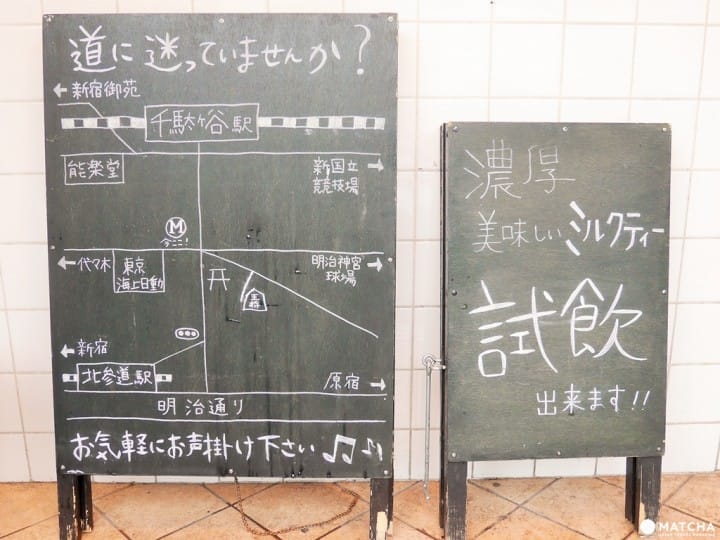 道に迷っていませんか?
← 新宿御苑
千駄ヶ谷駅
能楽堂
新国立
競技場 →
M
今ここ!
← 代々木
東京
海上日動
明治神宮
球場 →
← 新宿
北参道駅
原宿 →
明治通り
お気軽にお声掛け下さい♫♪
濃厚
美味しいミルクティー
試飲
出来ます!!
MATCHA